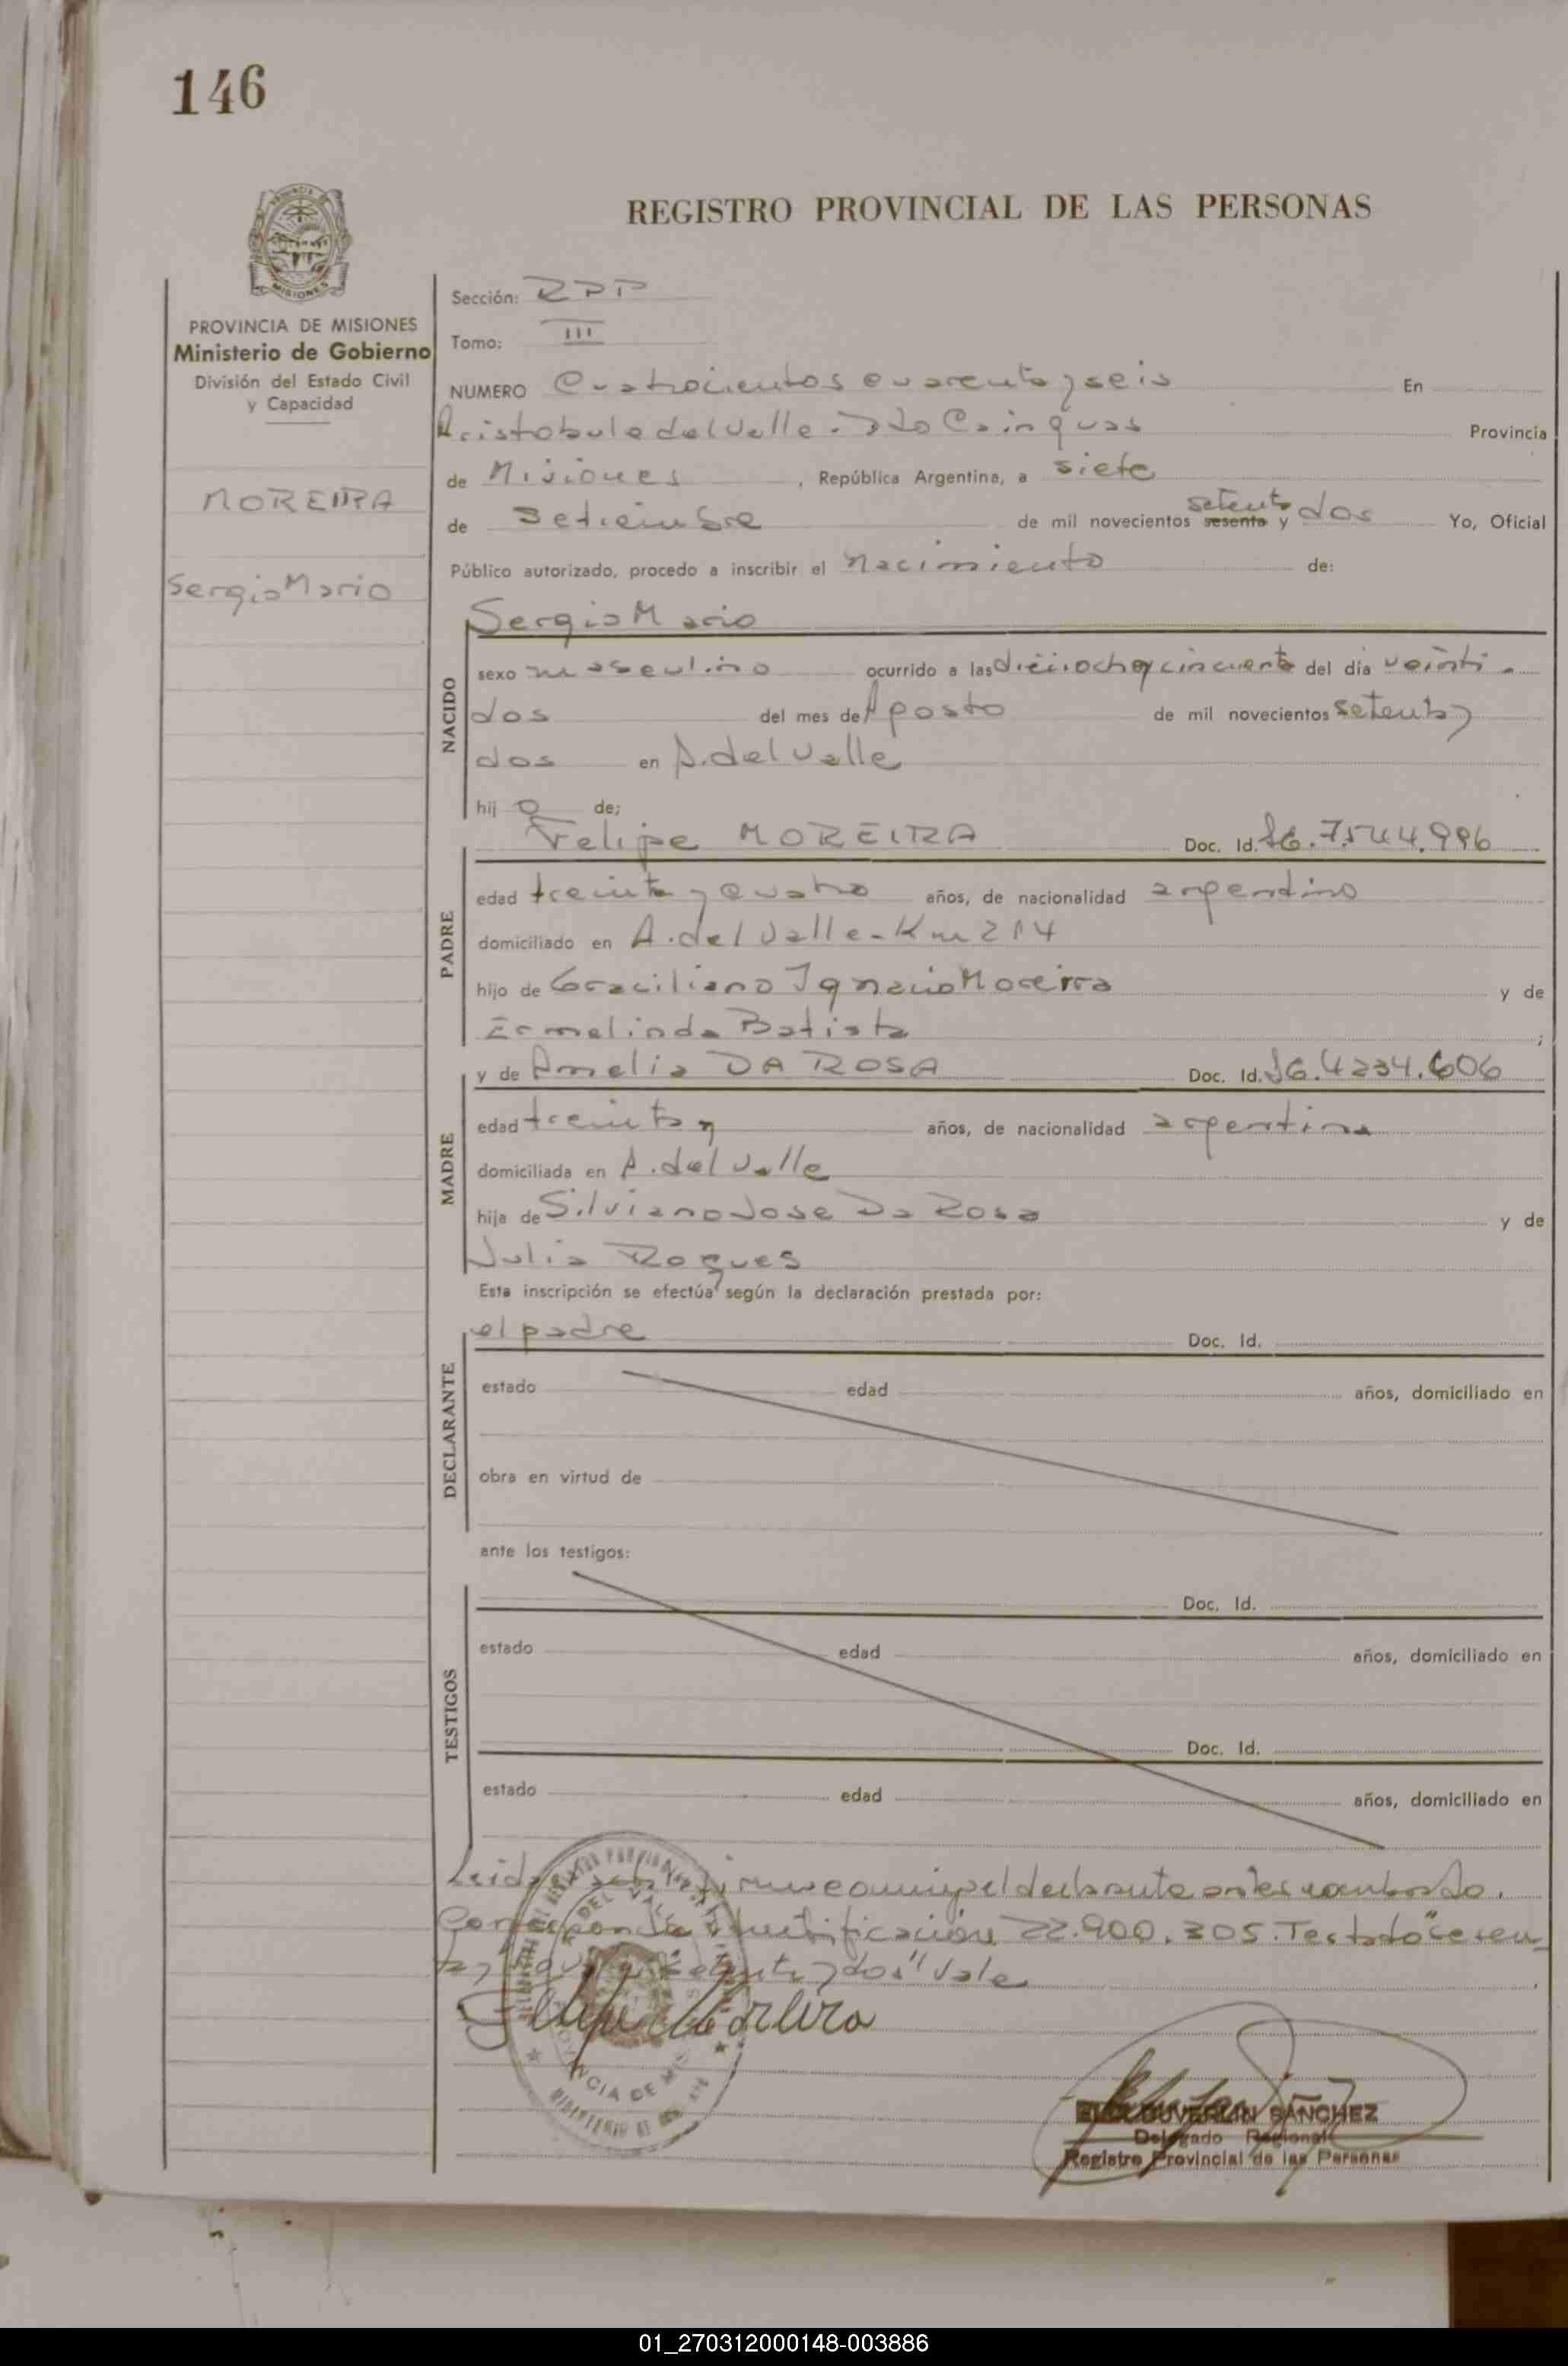 146
REGISTRO PROVINCIAL DE LAS PERSONAS
MISIONES
PROVINCIA DE MISIONES
Ministerio de Gobierno
División del Estado Civil
y Capacidad
MOREIRA
Sergio Mario
Sección: RPP
Tomo: III
NUMERO Cuatrocientos cuarenta y seis En
Aristobulo del Valle. Dto Cainguas Provincia
de Misiones, República Argentina, a siete
de Setiembre de mil novecientos sesenta setenta y dos Yo, Oficial
Público autorizado, procedo a inscribir el nacimiento de:
Sergio Mario
NACIDO
sexo masculino ocurrido a las dieciocho y cincuenta del día veinti-
dos del mes de Agosto de mil novecientos setenta y
dos en A. del Valle
hijo de;
Felipe MOREIRA Doc. Id. 7.544.996
PADRE
edad treinta y cuatro años, de nacionalidad argentino
domiciliado en A. del Valle - Km 214
hijo de Graciliano Ignacio Moreira y de
Ermelinda Batista ;
y de Amelia DA ROSA Doc. Id. 4.234.606
MADRE
edad treinta y años, de nacionalidad argentina
domiciliada en A. del Valle
hija de Silviano Jose Da Rosa y de
Julia Roques
Esta inscripción se efectúa según la declaración prestada por:
el padre Doc. Id.
DECLARANTE
estado edad años, domiciliado en
obra en virtud de
ante los testigos:
TESTIGOS
Doc. Id.
estado edad años, domiciliado en
Doc. Id.
estado edad años, domiciliado en
Leida firma conmigo el declarante antes nombrado.
Corresponde identificación 22.900.305. Testado "sesen-
ta y setenta y dos" Vale
Felipe Moreira
PROVINCIA DE MIS
DUVERLIN SANCHEZ
Delegado Regional
Registro Provincial de las Personas
01_270312000148-003886